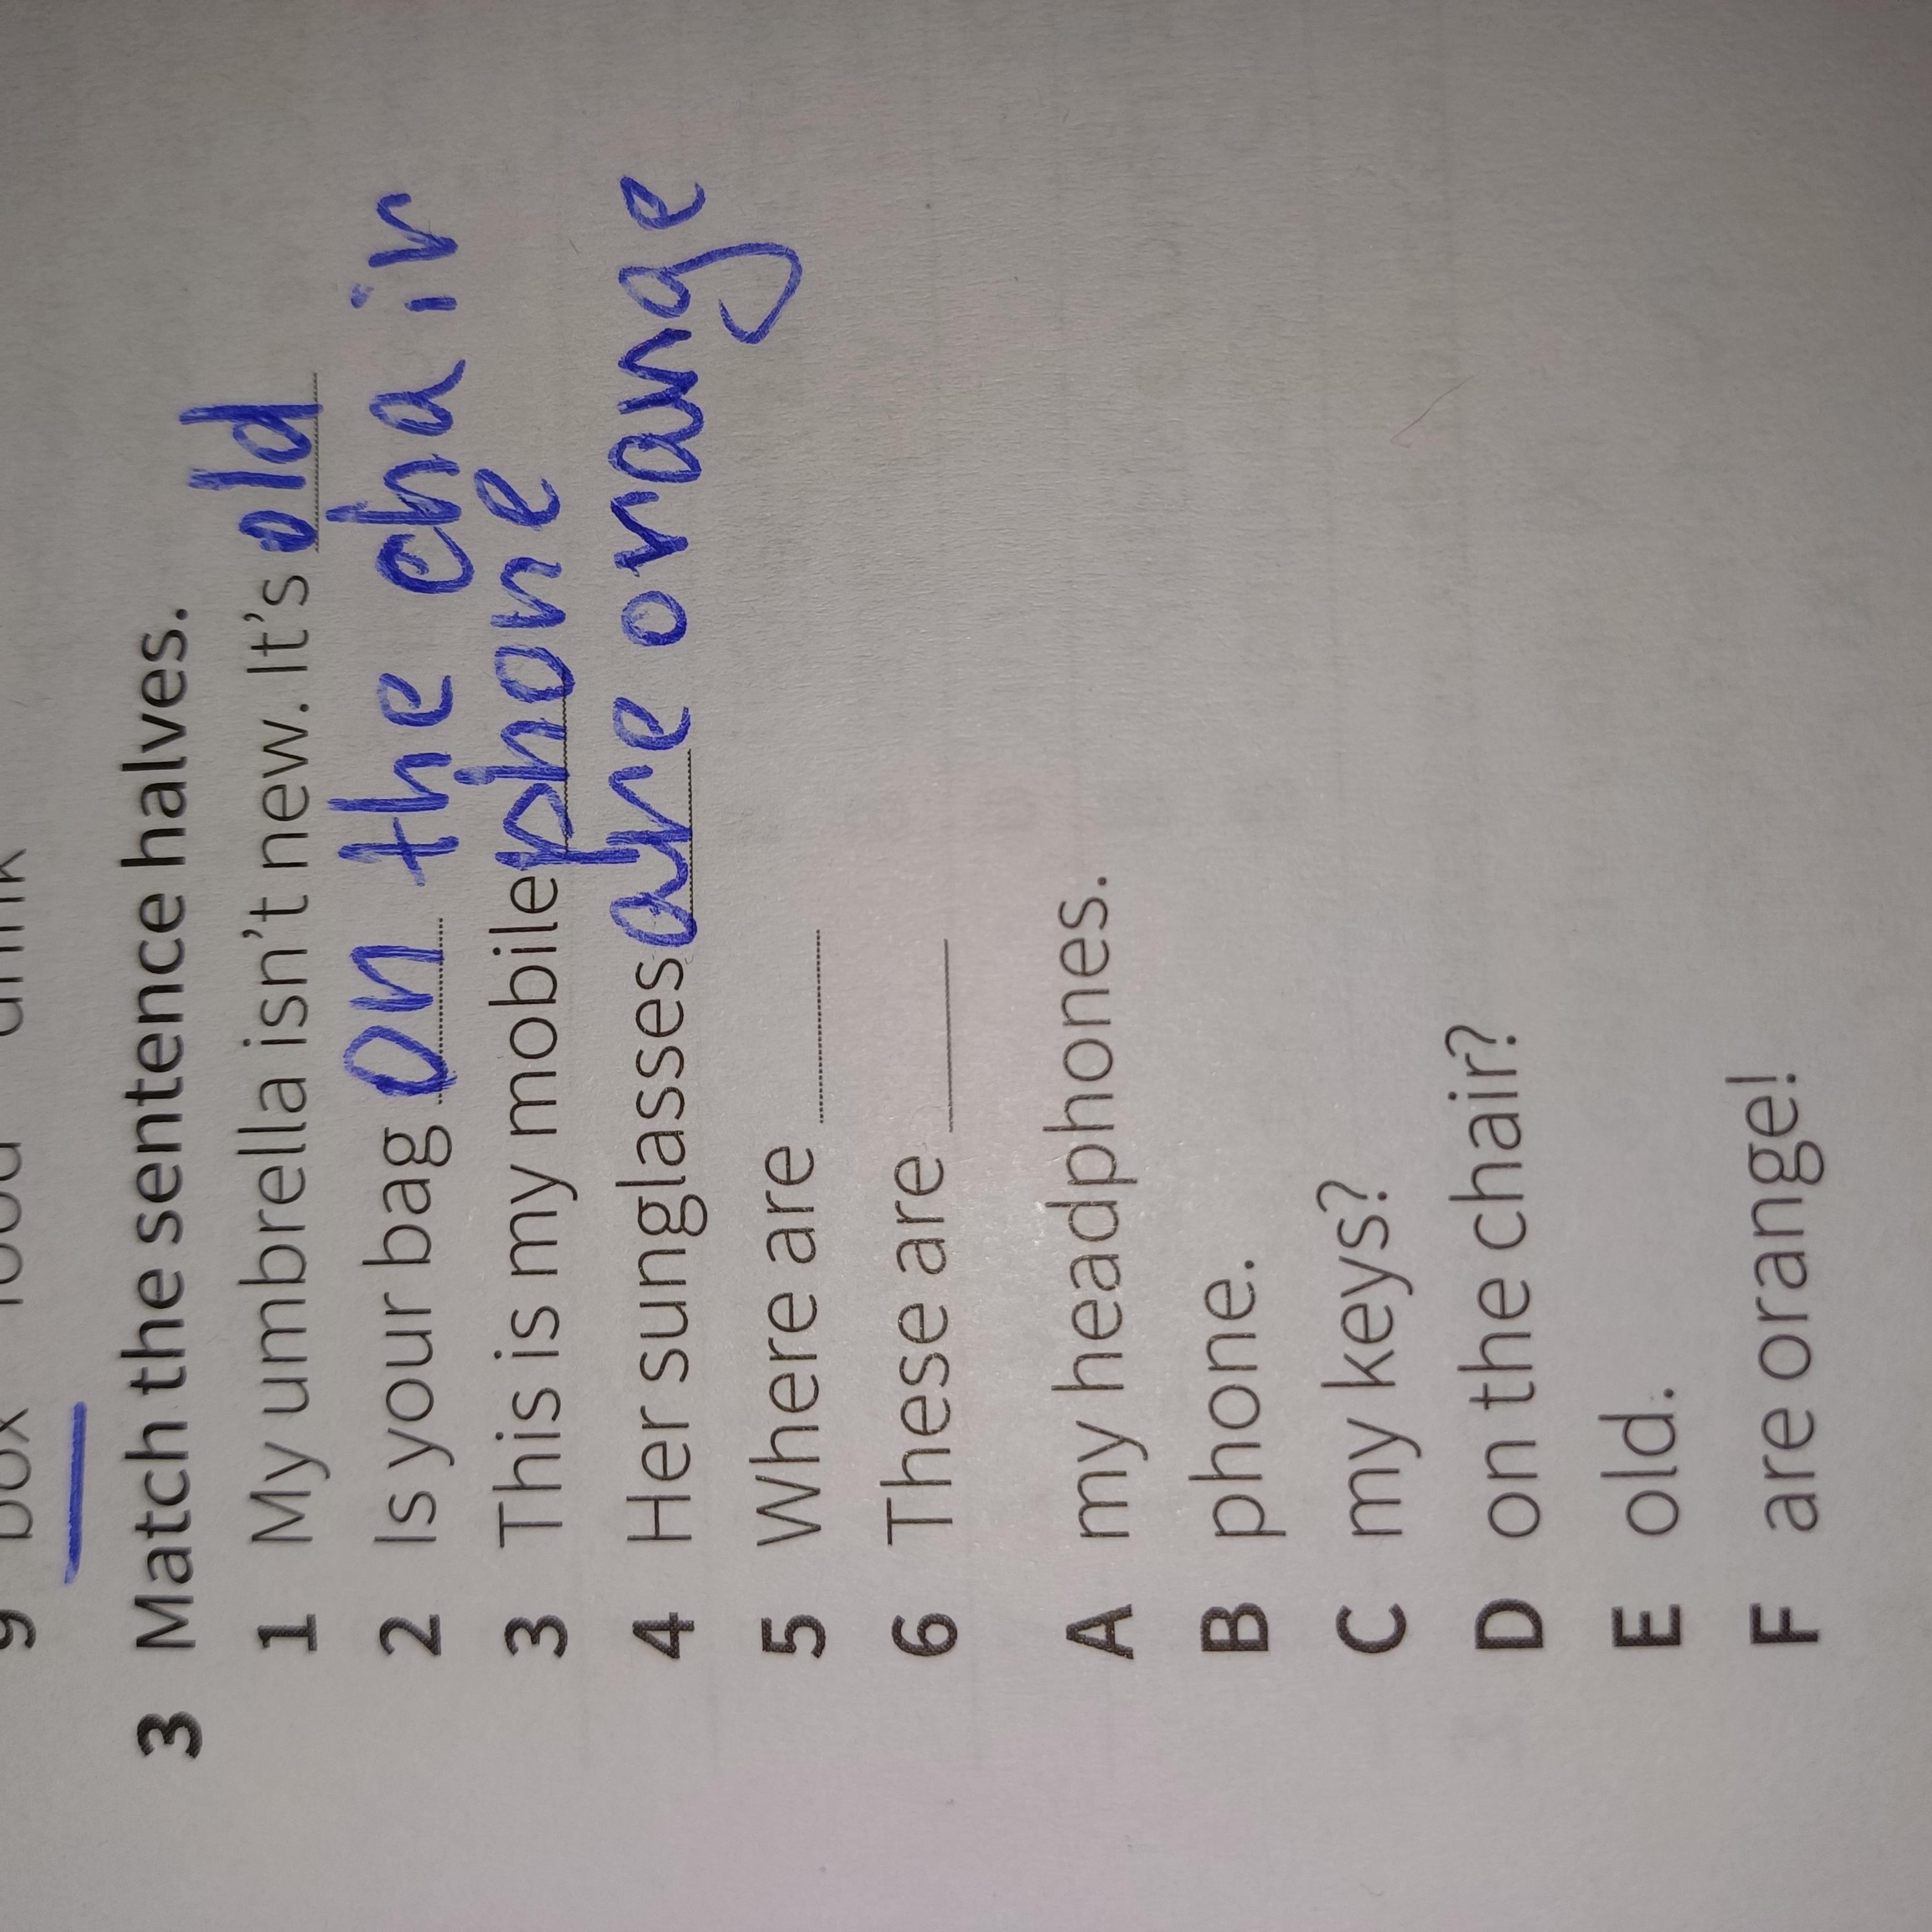 9 box food drink
3 Match the sentence halves.
1 My umbrella isn't new. It's old
2 Is your bag on the chair
3 This is my mobile phone
4 Her sunglasses are orange
5 Where are
6 These are
A my headphones.
B phone.
C my keys?
D on the chair?
E old.
F are orange!